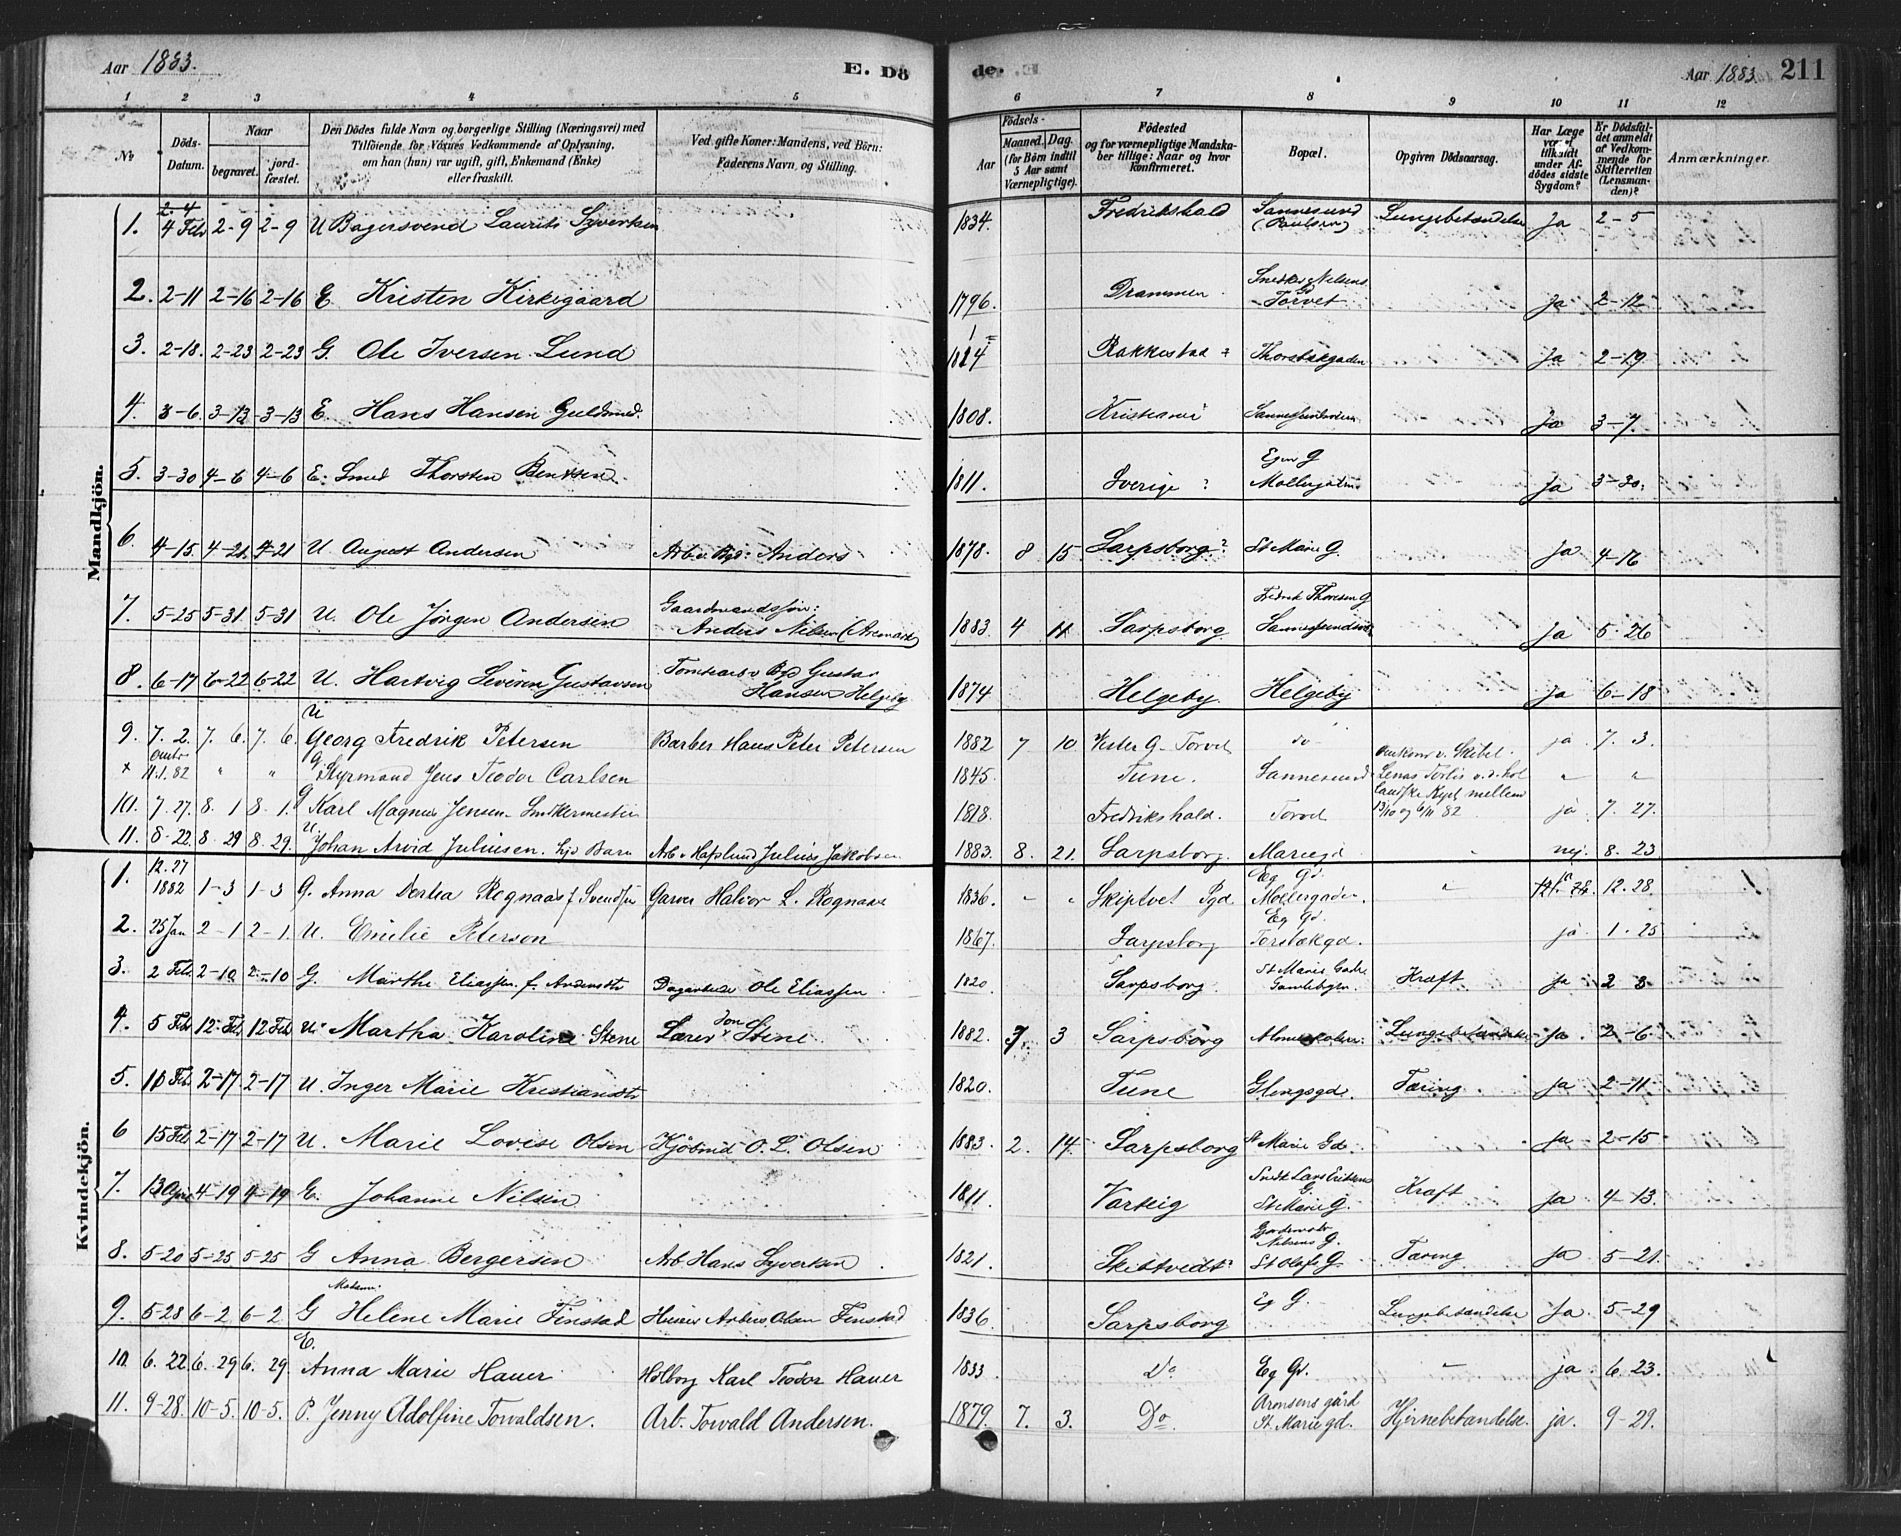 Aar 1883. E. Dö
de. Aar 1883. 211
1 2 3 4 5 6 7 8 9 10 11 12
No Döds-Datum. Naar begravet. jordfæstet. Den Dödes fulde Navn og borgerlige Stilling (Næringsvei) med Tilföiende for Voxnes Vedkommende af Oplysning, om han (hun) var ugift, gift, Enkemand (Enke) eller fraskilt. Ved gifte Koner: Mandens, ved Börn: Faderens Navn, og Stilling. Födsels- Aar Maaned. Dag. (for Börn indtil 5 Aar samt Værnepligtige). Födested og for værnepligtige Mandskaber tillige: Naar og hvor konfirmeret. Bopæl. Opgiven Dödsaarsag. Har Læge været tilkaldt under Afdödes sidste Sygdom? Er Dödsfaldet anmeldt af Vedkommende for Skifteretten (Lensmanden)? Anmærkninger.
Mandkjön.
1. 4 Feb 2-9 2-9 U Bagersvend Laurits Syvertsen 1834. Fredrikshald Sannesund (Paulsen) Lungebetændelse Ja 2-5
2. 2-11 2-16 2-16 E Kristen Kirkegaard 1796. Drammen Torvet Ja 2-12
3. 2-18. 2-23 2-23 G. Ole Iversen Lund 1824 Rakkestad ? Ja 2-19
4. 3-6. 3-13 3-13 E. Hans Hansen Guldsmed. 1808. Ja 3-7.
5. 3-30 4-6 4-6 E. Smed Thorsten Bentsen. 1811. Sverige ? Ja 3-30.
6. 4-15. 4-21. 4-21 U August Andersen Anders 1878. 8 15 Sarpsborg? St Marie G. Ja 4-16
7. 5-25 5-31. 5-31 U. Ole Jörgen Andersen Anders Nilsen (Aremark) 1883 4 11. Sarpsborg Ja 5-26
8. 6-17 6-22 6-22 U. Hartvig Severin Gustavsen Gustav Hansen Helgeby 1874 Helgeby Helgeby Ja 6-18
9. 7. 2. 7. 6. 7. 6. U Georg Fredrik Petersen Barber Hans Peter Petersen 1882 7 10 Vester G- Torvet do ja 7. 3.
+ 11.1.82 " " G Styrmand Jens Teodor Carlsen 1845. Tune. Sannesund " "
10. 7. 27. 8. 1 8. 1. G Karl Magnus Jensen 1818. Fredrikshald. Torvet ja 7. 27.
11. 8. 22. 8. 29 8. 29. U. Johan Arvid Juliusen. Arb v Hafslund Julius Jakobsen 1883. 8. 21. Sarpsborg. Mariegd. nej. 8. 23
Kvindekjön.
1. 12. 27 1882 1-3 1-3 G. Anna Dorthea Rognaas f Svendsen Garver Halvor L. Rognaas 1836. " " Skiptvet Pgd. Eg Gd. Möllergaden. " 12. 28.
2. 25 Jan 2-1 2-1. U. Emilie Peterson 1867. Sarpsborg Eg Gd. Torsbækgd. ja 1. 25
3. 2 Feb. 2-10 2-10 G Marthe Eliassen f. Andersdtr Ole Eliassen 1820 Sarpsborg Kræft Ja 2 3
4. 5 Feb 12. Feb. 12 Feb U. Martha Karoline Stene Lærer Stene 1882. 7. 3 Sarpsborg Lungebetændelse Ja 2-6
5. 10 Feb. 2-17. 2-17 U. Inger Marie Kristiansdtr 1820. Tune Glengsgd. Tæring Ja 2-11
6 15 Feb. 2-17 2-17 U. Marie Lovise Olsen O. L. Olsen 1883. 2. 14. Sarpsborg St Marie Gd. Ja 2-15
7. 13 April 4-19 4-19 E. Johanne Nilsen 1811. Varteig St Marie G. Kræft Ja 4-13.
8. 5-20 5-25 5-25 G Anna Bergersen Arb Hans Syvertsen 1821. Skiptvedt? Nilsens G. St Olafs G Tæring Ja 5-21.
9. 5-28 6-2 6-2 G Helene Marie Finstad Olsen Finstad 1836. Sarpsborg Eg G. Lungebetændelse Ja 5-29
10 6. 22. 6. 29 6. 29. E. Anna Marie Hauer Karl Teodor Hauer 1833 Do Eg Gd. " ja 6 23.
11. 9-28. 10-5. 10-5. P. Jenny Adolfine Torvaldsen. Arb. Torvald Andersen. 1879. 7. 3. Do. St. Mariegd. Hjernebetændelse. ja. 9-29.